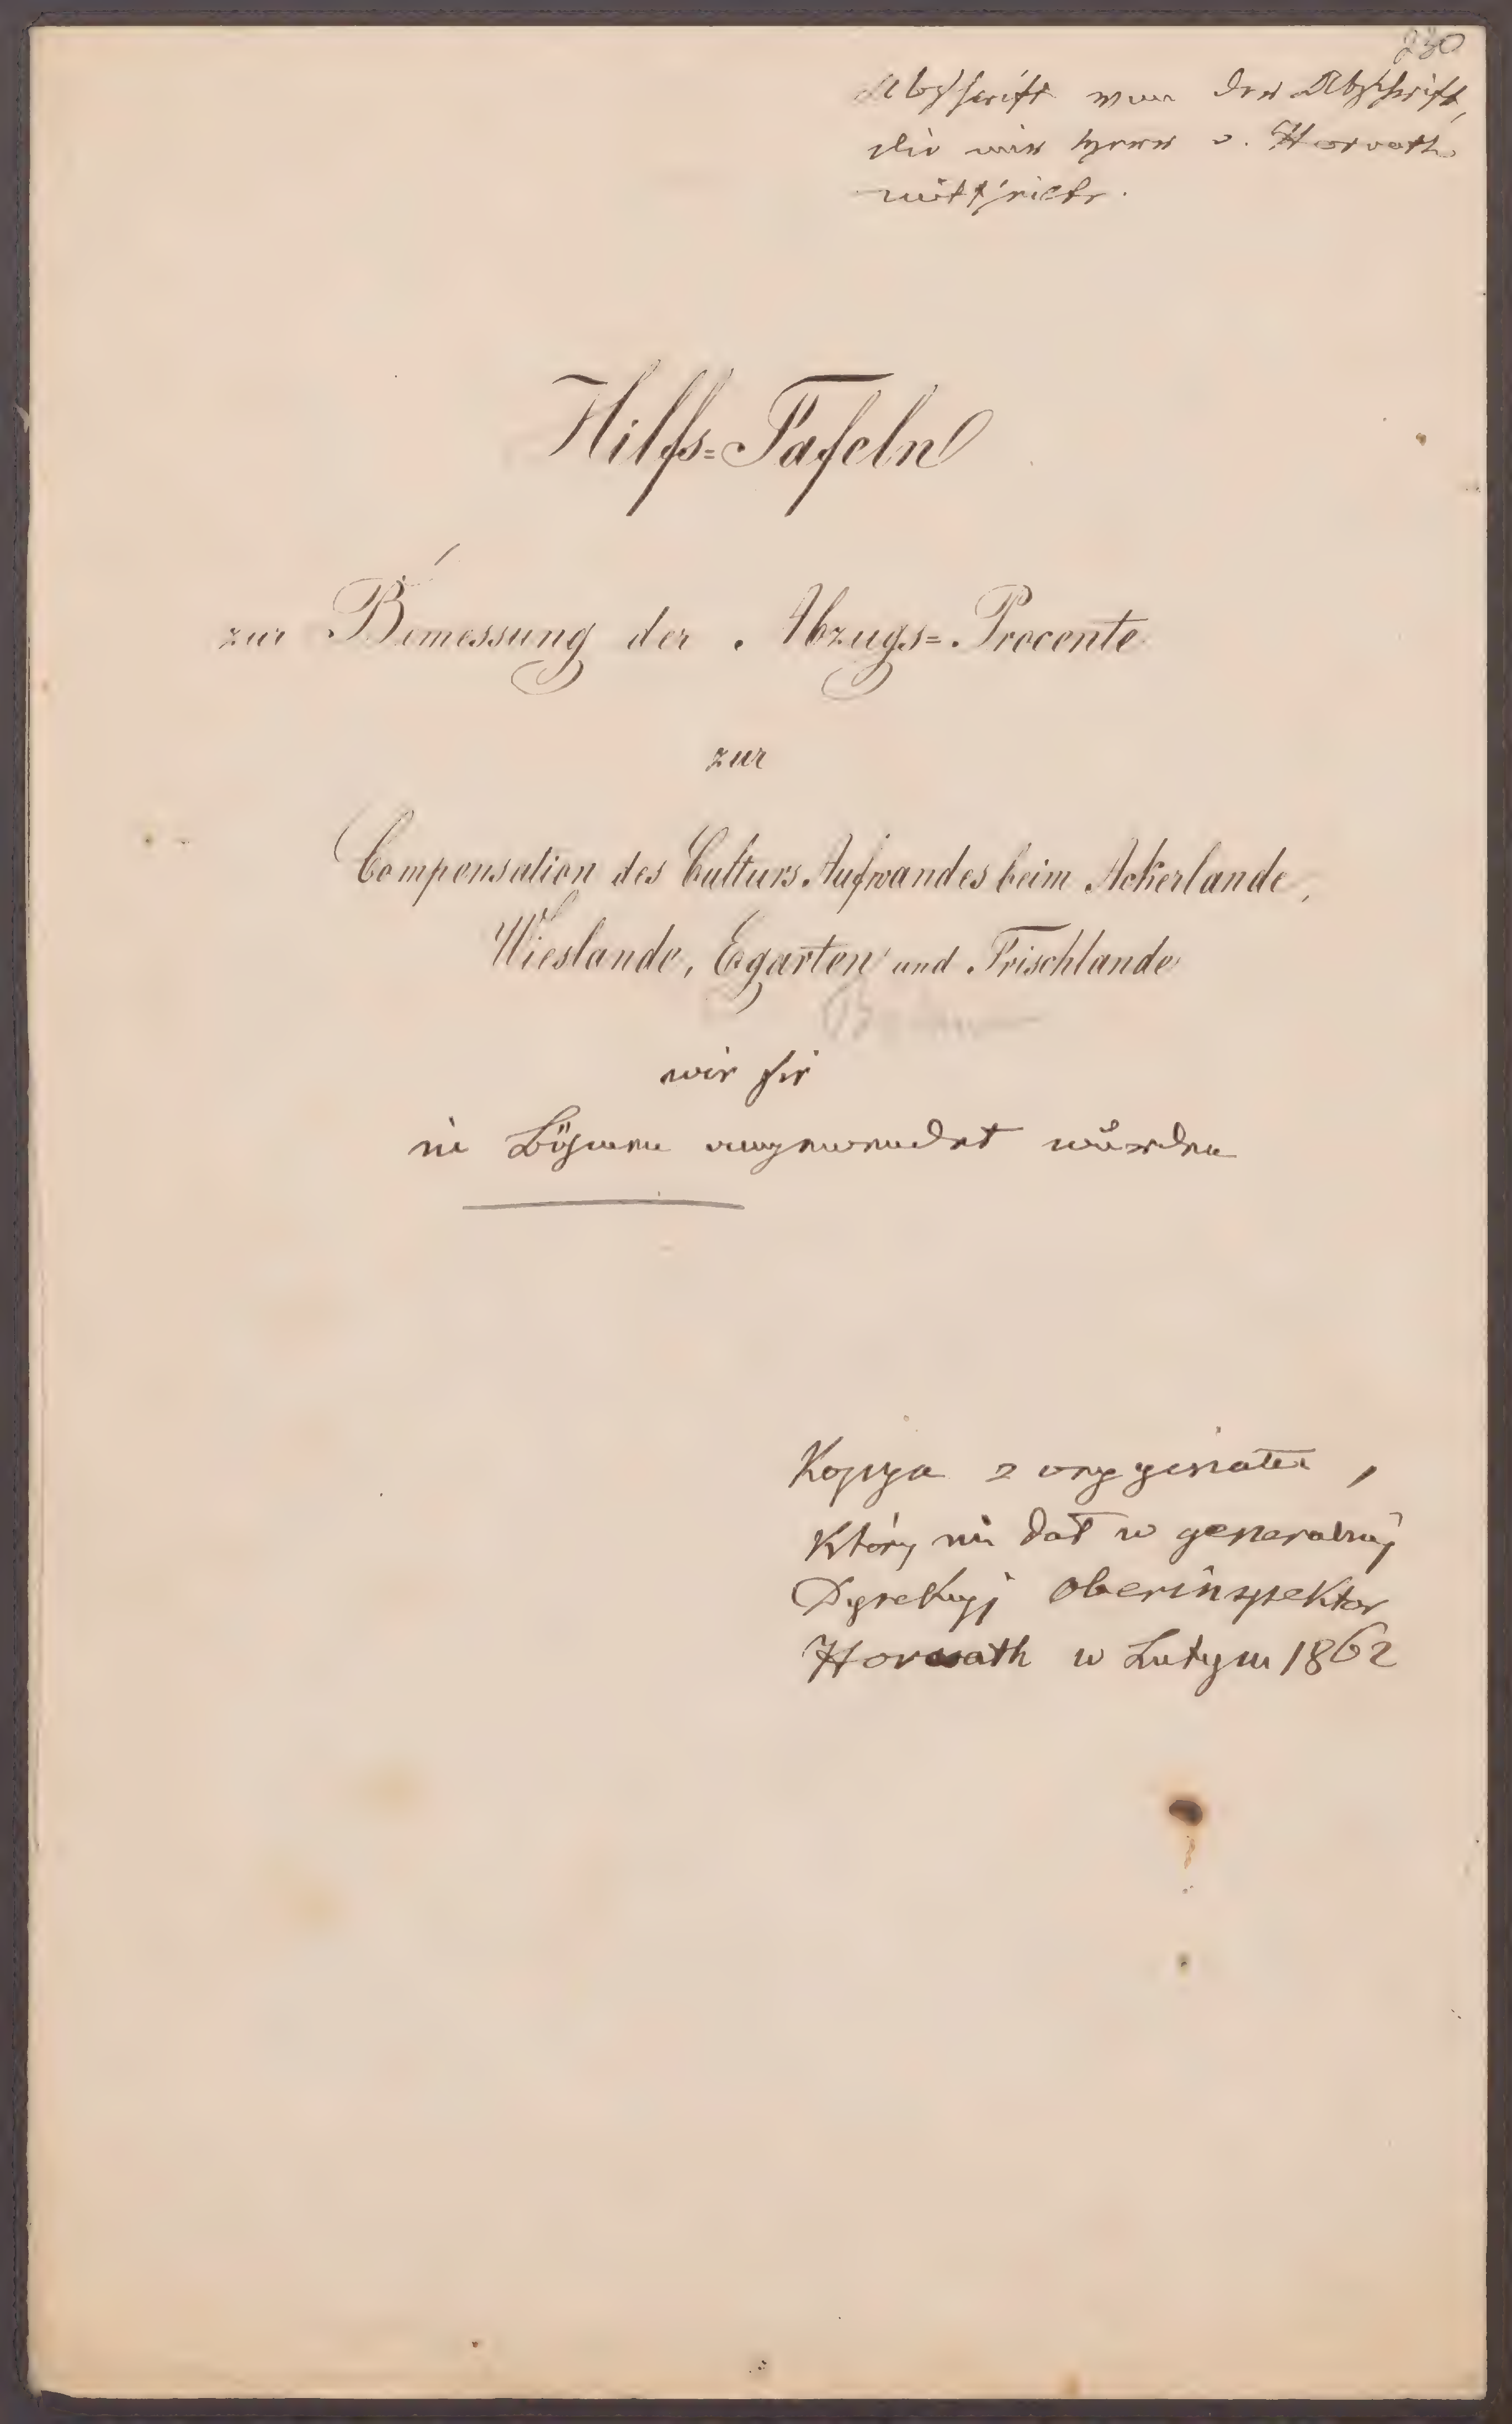 230
Abschrift von der Abschrift,
die mir Herr v. Horvath
mittheilte.
Hilfs=Tafeln
zur Bemessung der Abzugs=Procente
zur
Compensation des Culturs Aufwandes beim Ackerlande,
Wieslande, Egarten und Trischlande
wie sie
in Böhmen angewendet wurden
Kopya z oryginału,
który mi dał w generalnej
Dyrekcyj Oberinspektor
Horvath w Lutym 1862